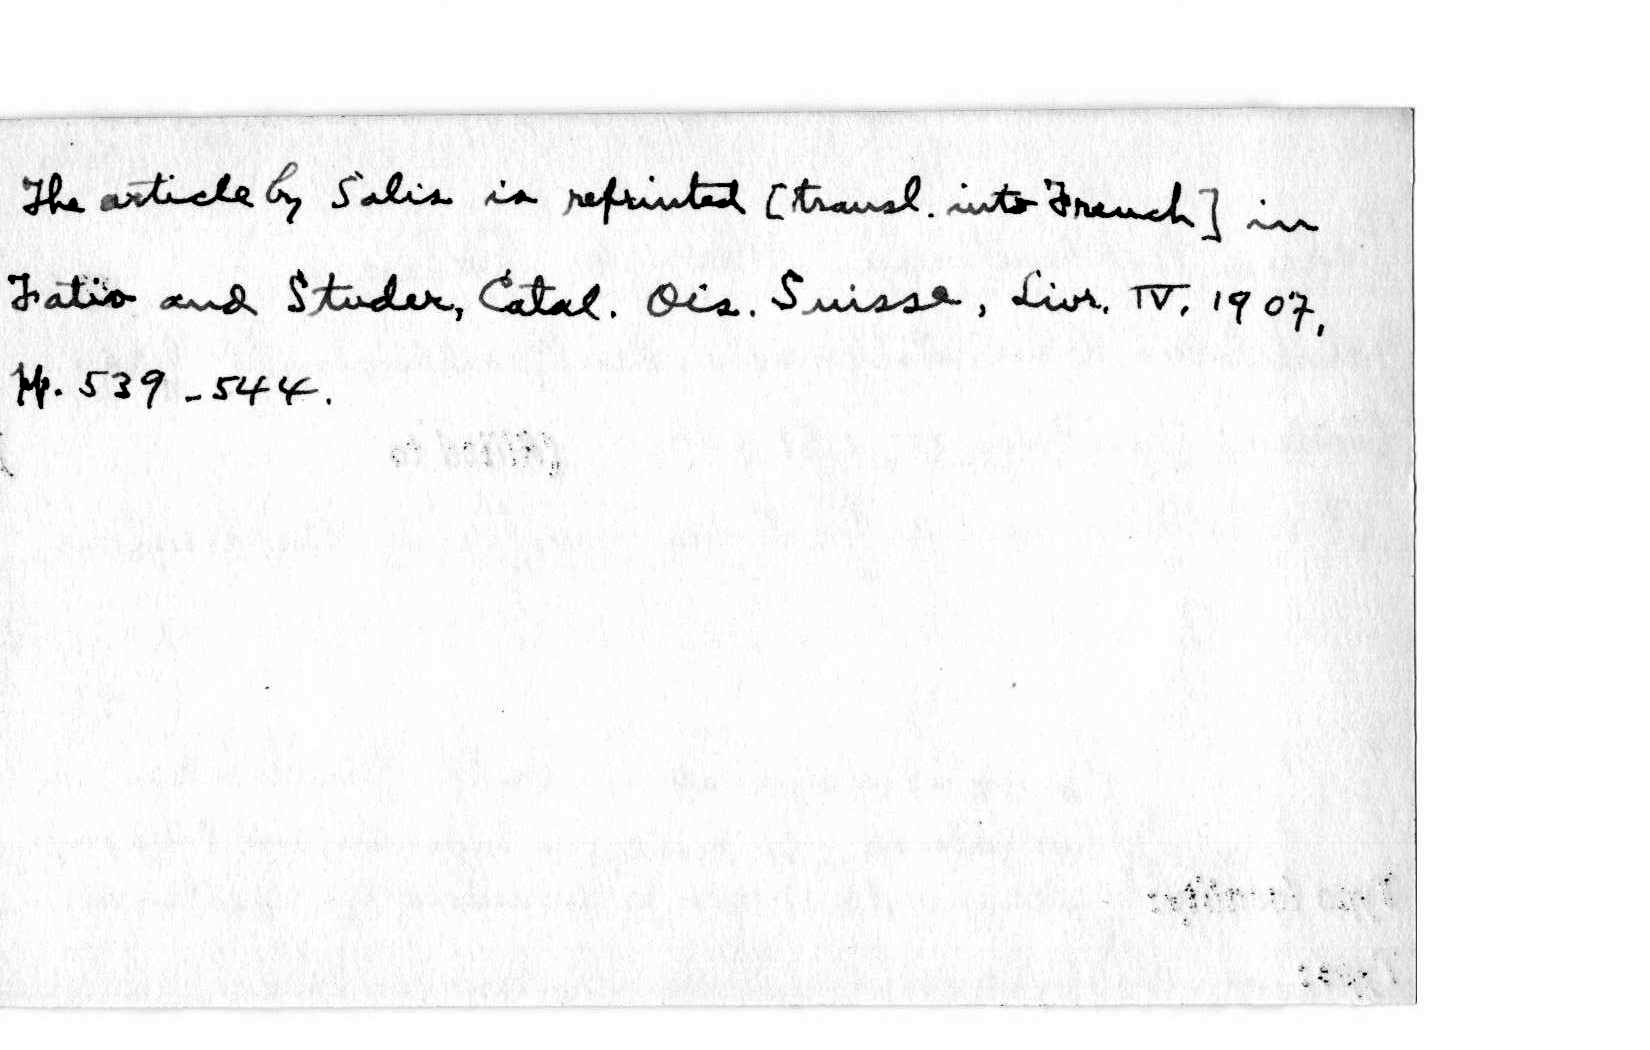 The article by Salis is reprinted [transl. into French] in
Fatio and Studer, Catal. Ois. Suisse, Livr. IV, 1907,
pp. 539-544.